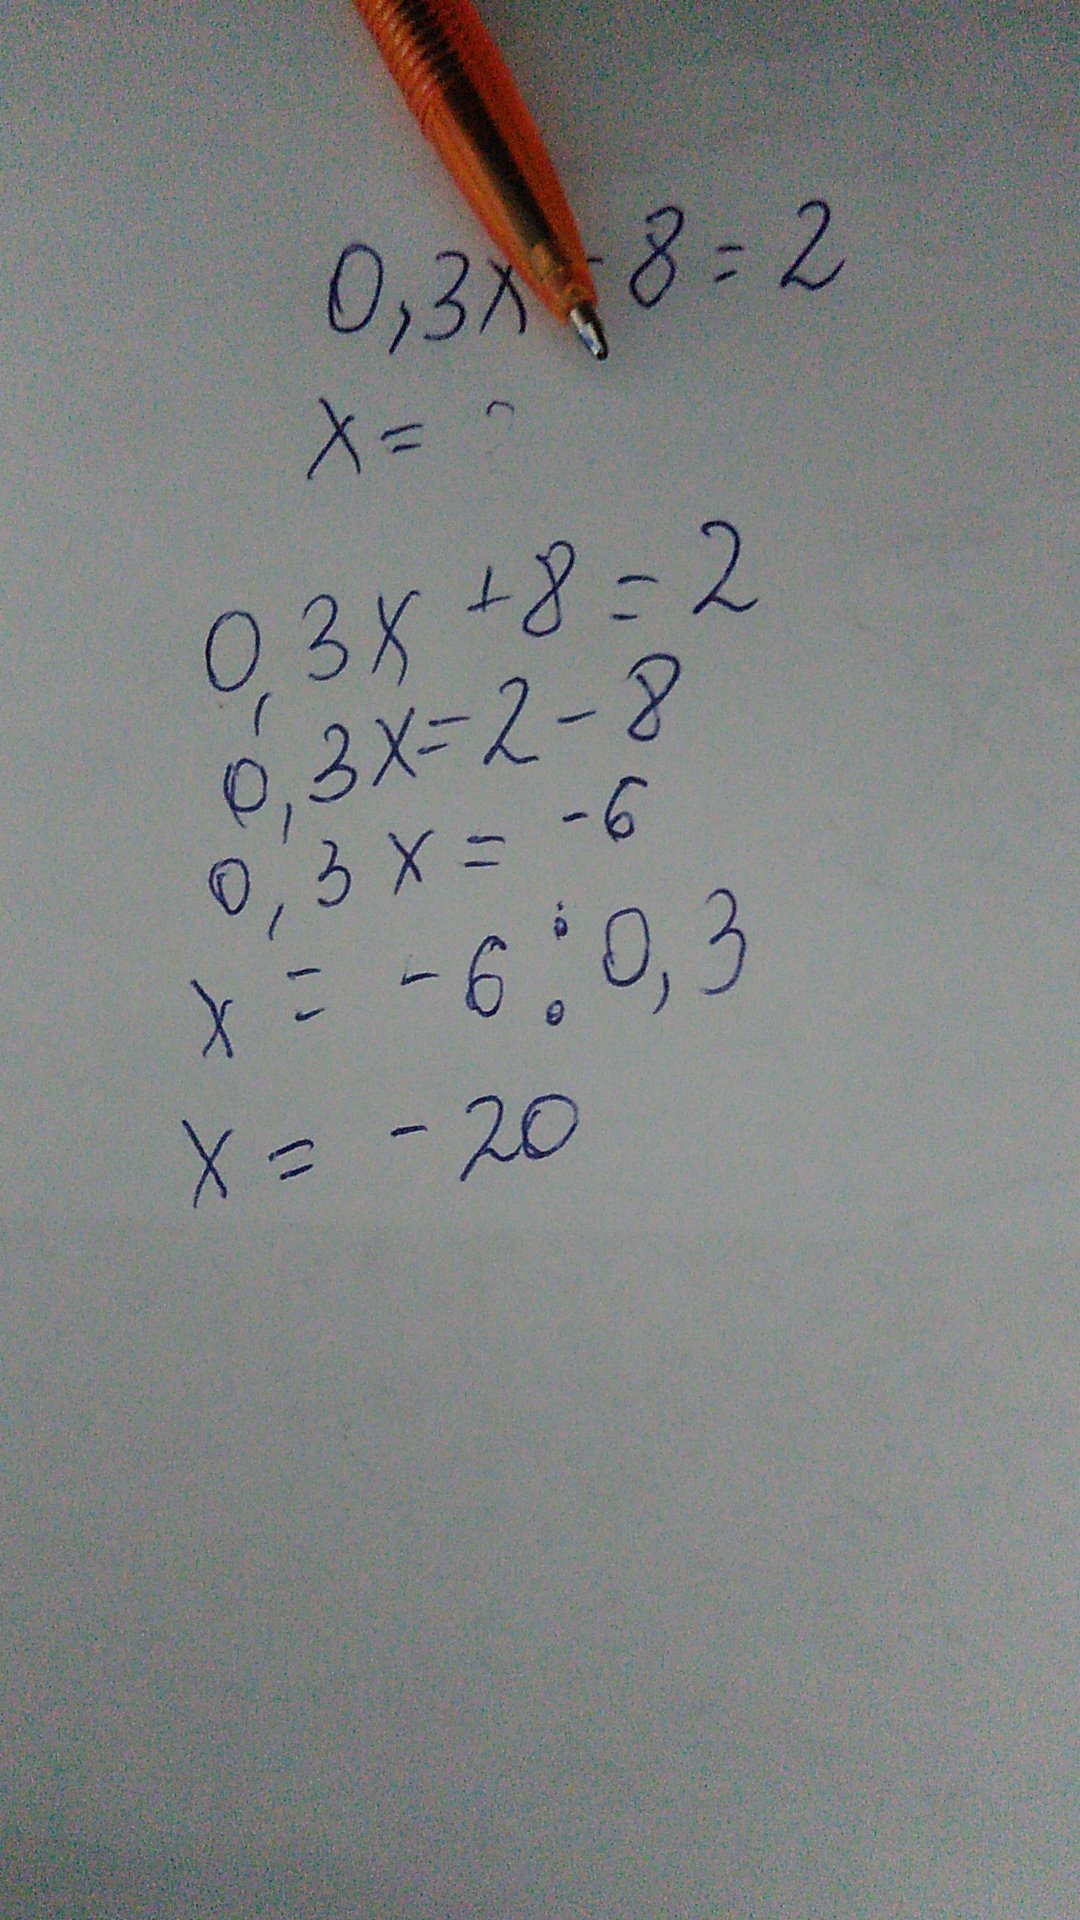 0,3x - 8 = 2
x =
0,3x + 8 = 2
0,3x = 2 - 8
0,3x = -6
x = -6 : 0,3
x = -20